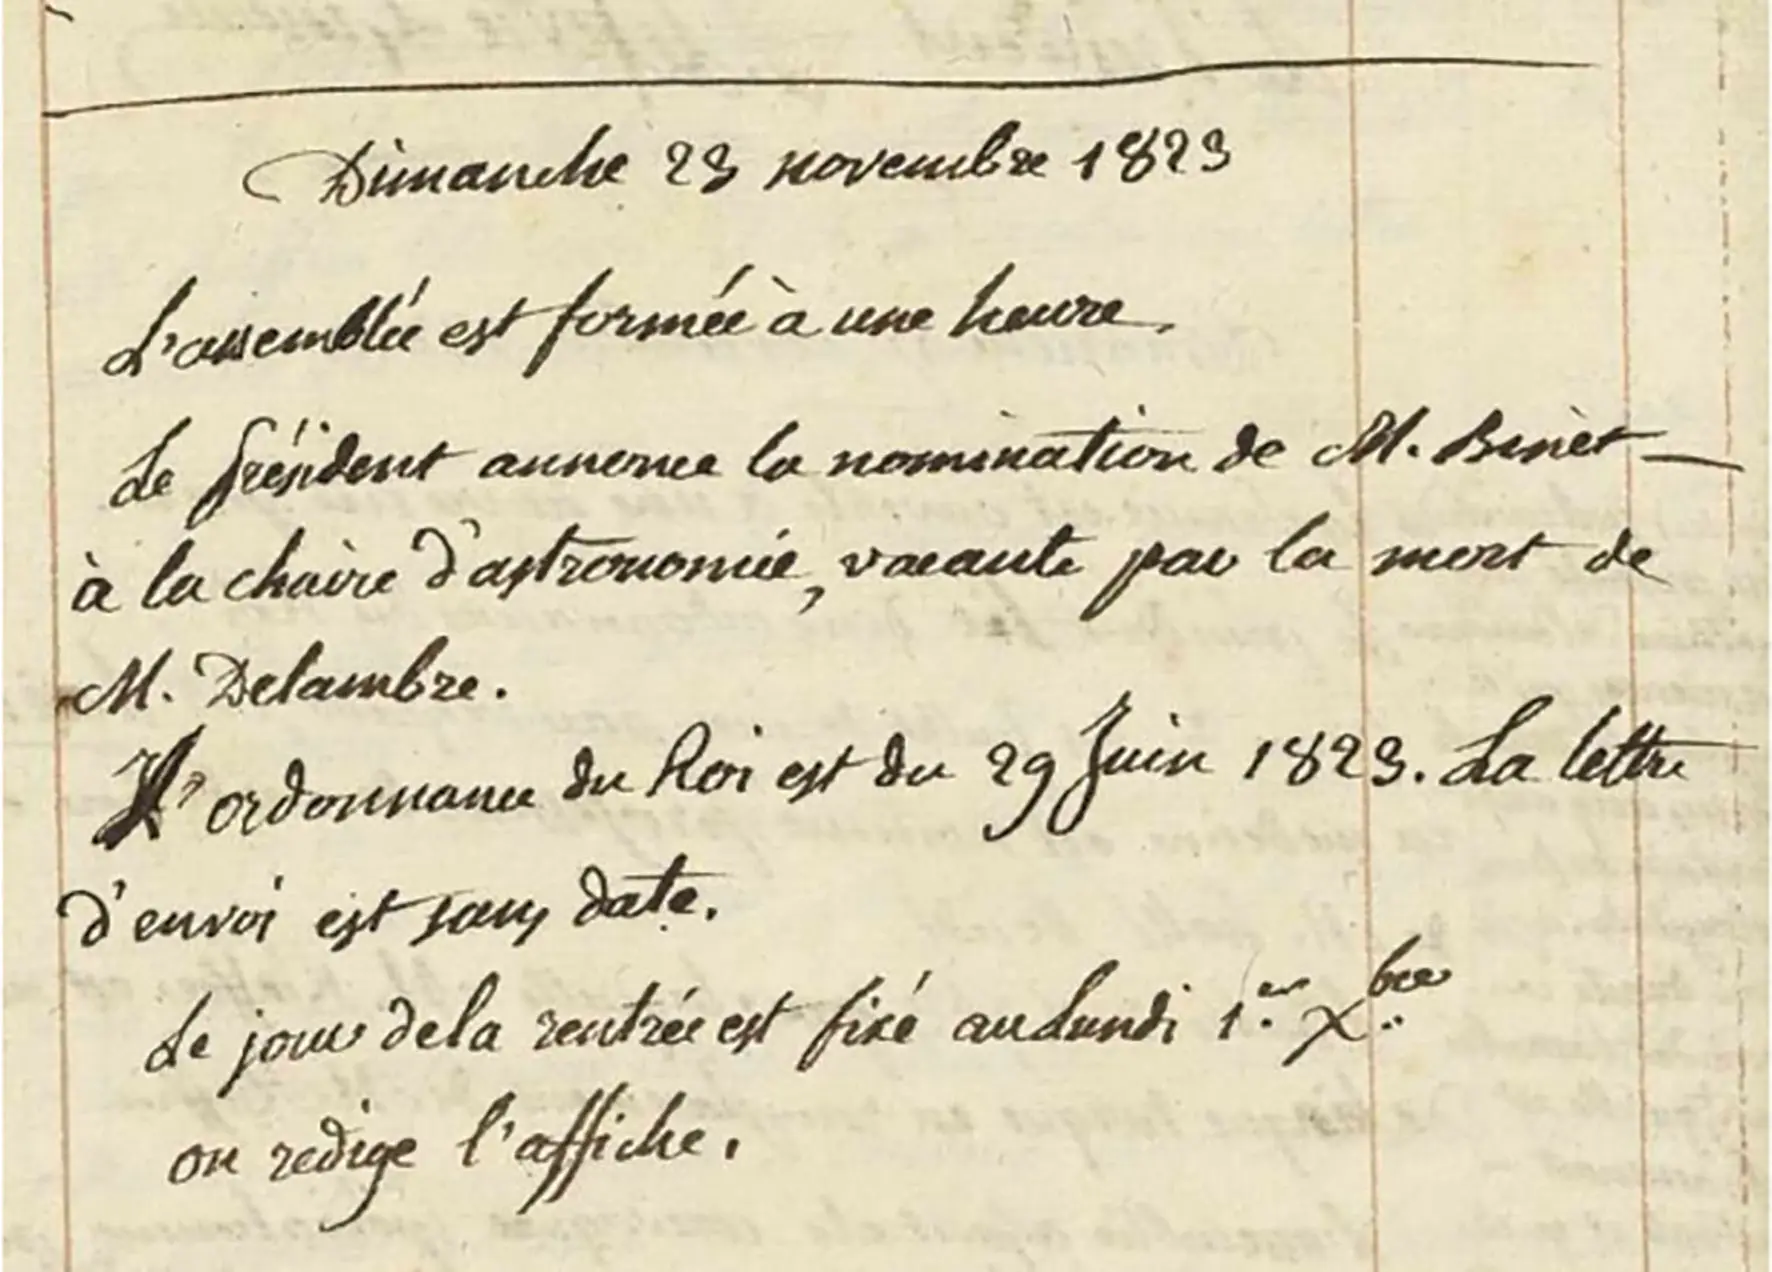 Dimanche 23 novembre 1823
L'assemblée est formée à une heure.
Le président annonce la nomination de M. Binet
à la chaire d'astronomie, vacante par la mort de
M. Delambre.
L'ordonnance du Roi est du 29 Juin 1823. La lettre
d'envoi est sans date.
Le jour de la rentrée est fixé au Lundi 1.er Xbre
on redige l'affiche.